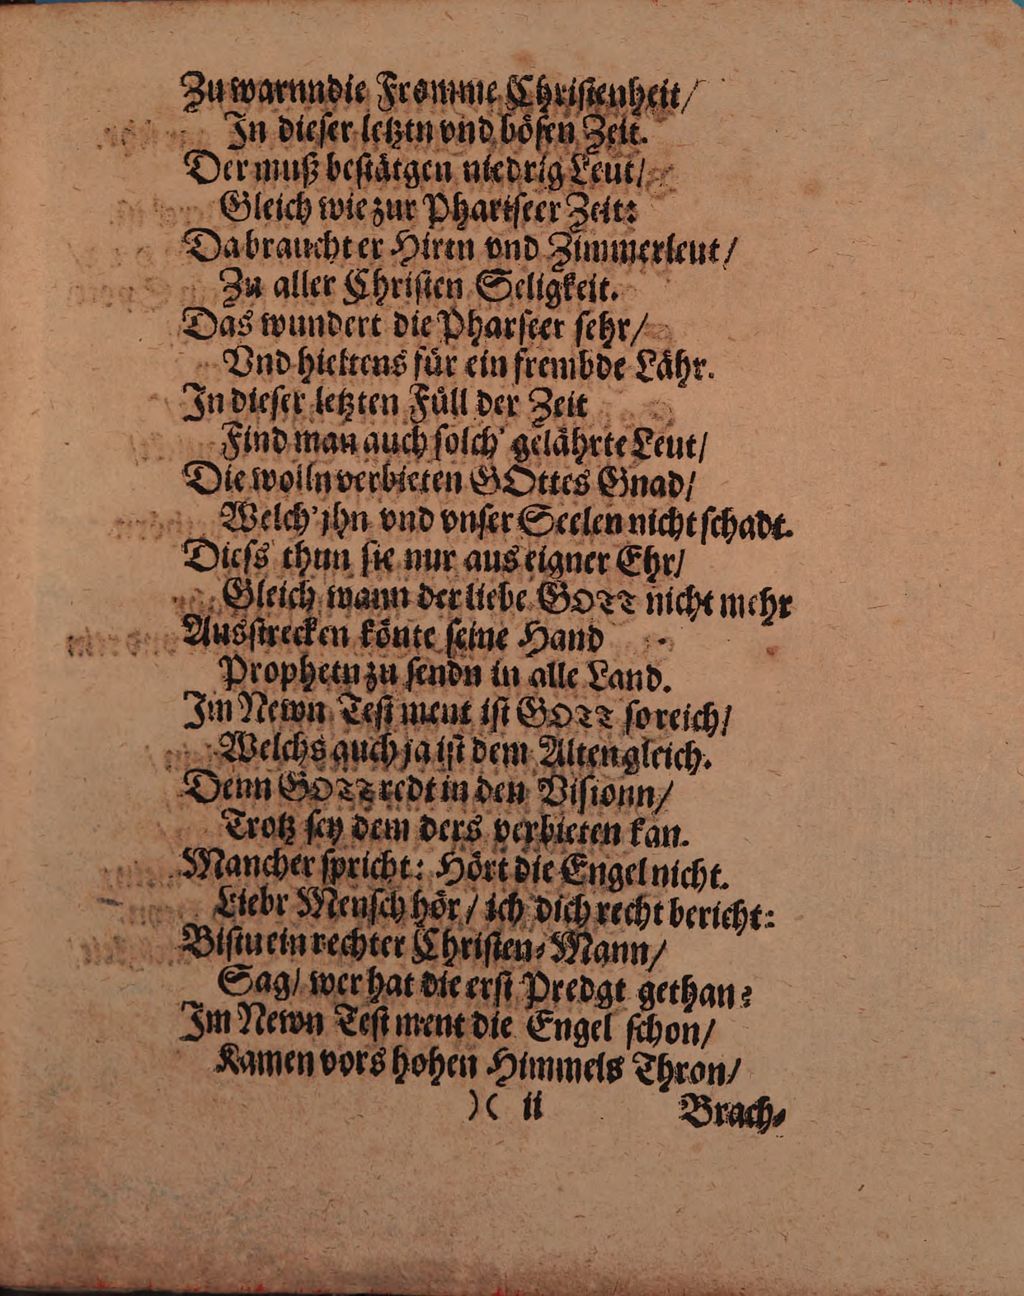 Zu warnn die Fromme Chriſtenheit/
In dieſer letztn vnd boͤſen Zeit.
Der muß beſtaͤtgen niedrig Leut/
Gleich wie zur Phariſeer Zeit:
Da braucht er Hirtn vnd Zimmerleut/
Zu aller Chriſten Seligkeit.
Das wundert die Pharſeer ſehr/
Vnd hieltens fuͤr ein frembde Laͤhr.
In dieſer letzten Fuͤll der Zeit
Find man auch ſolch' gelaͤhrte Leut/
Die wolln verbieten GOttes Gnad/
Welch' jhn vnd vnſer Seelen nicht ſchadt.
Dieſs thun ſie nur aus eigner Ehr/
Gleich wann der liebe GOTT nicht mehr
Ausſtrecken koͤnte ſeine Hand
Prophetn zu ſendn in alle Land.
Im Newn Teſt ment iſt GOTT ſo reich/
Welchs auch ja iſt dem Alten gleich.
Denn GOTT redt in den Viſionn/
Trotz ſey dem ders verbieten kan.
Mancher ſpricht: Hoͤrt die Engel nicht.
Liebr Menſch hoͤr/ ich dich recht bericht:
Biſtu ein rechter Chriſten⸗Mann/
Sag/ wer hat die erſt Predgt gethan?
Im Newn Teſt ment die Engel ſchon/
Kamen vors hohen Himmels Thron/
)( ii Brach⸗